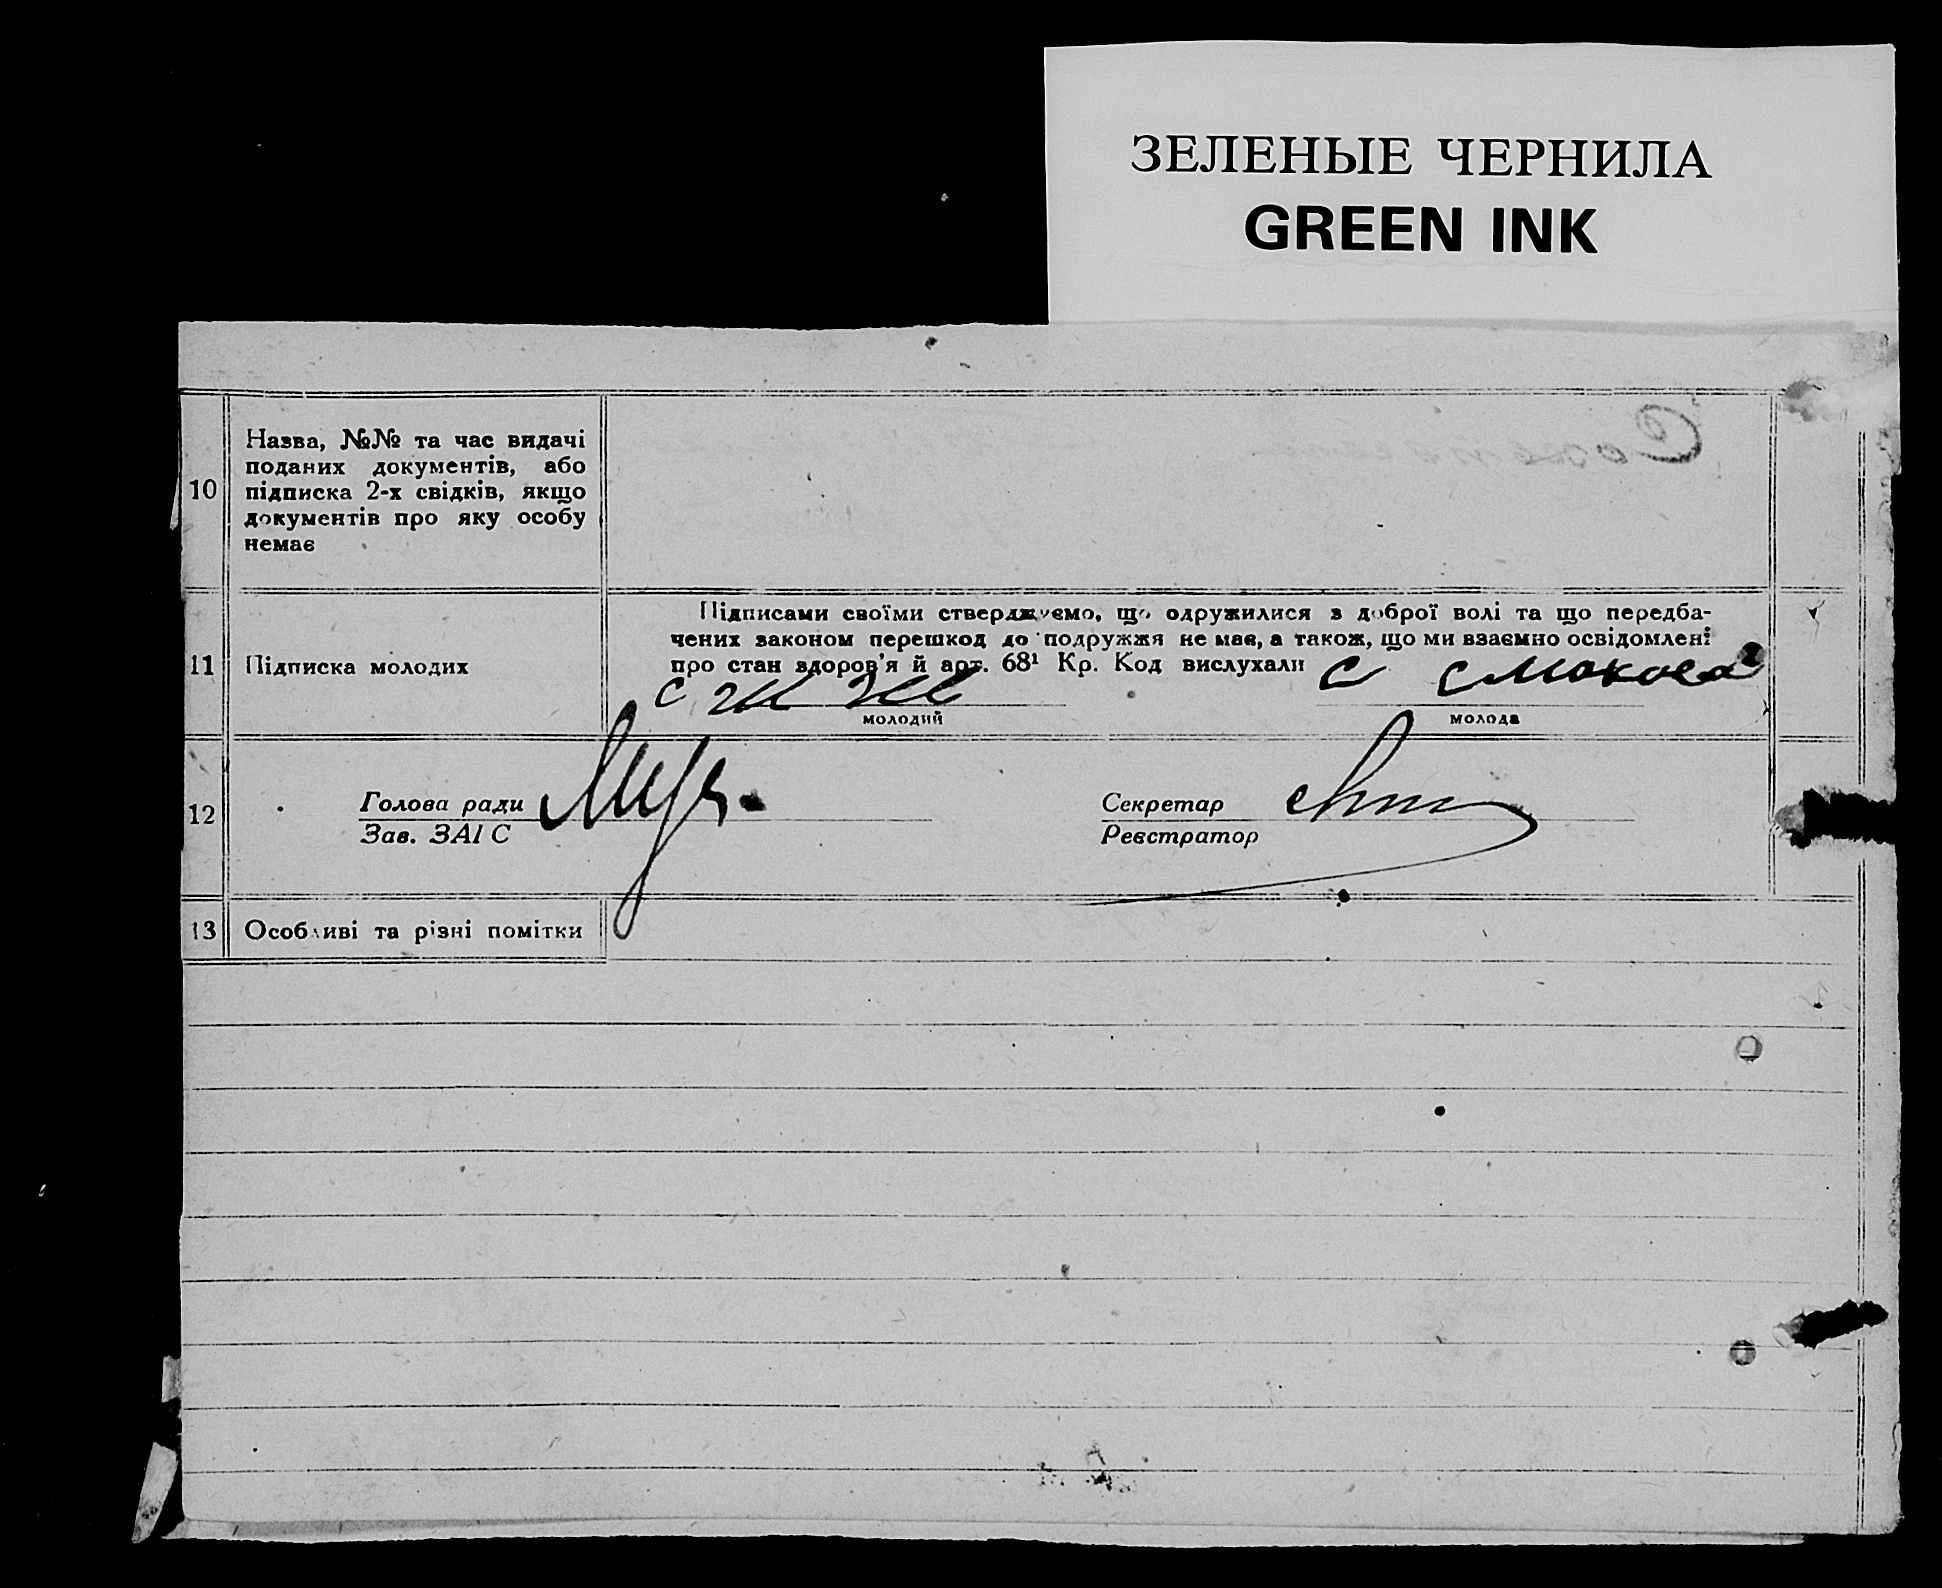 ЗЕЛЕНЫЕ ЧЕРНИЛА
GREEN INK
10
Назва, №№ та час видачі
поданих документів, або
підписка 2-х свідків, якщо
документів про яку особу
немає
11
Підписка молодих
Підписами своїми стверджуємо, що одружилися з доброї волі та що передба-
чених законом перешкод до подружжя не має, а також, що ми взаємно освідомлені
про стан здоров'я й арт. 68¹ Кр. Код вислухали
молодий
молода
12
Голова ради
Зав. ЗАГС
Секретар
Реєстратор
13
Особливі та різні помітки